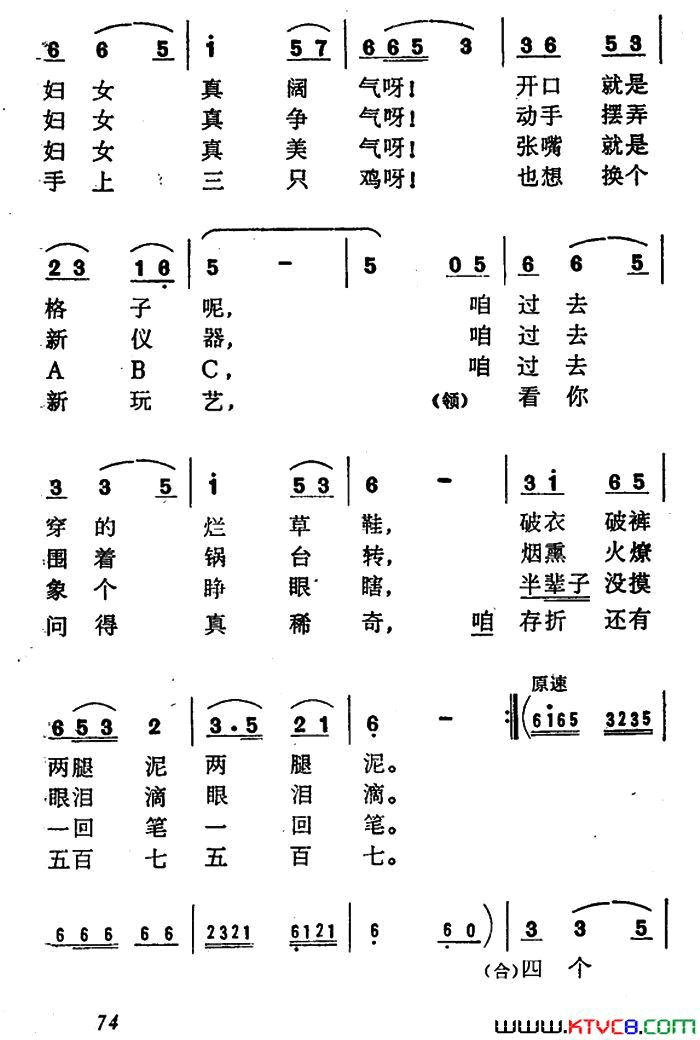 6 6 5 | i 5 7 | 6 6 5 3 | 3 6 5 3 |
妇 女 真 阔 气呀! 开口 就是
妇 女 真 争 气呀! 动手 摆弄
妇 女 真 美 气呀! 张嘴 就是
手 上 三 只 鸡呀! 也想 换个
2 3 1 6 | 5 - | 5 0 5 | 6 6 5 |
格 子 呢, 咱 过 去
新 仪 器, 咱 过 去
A B C, 咱 过 去
新 玩 艺, (领) 看 你
3 3 5 | i 5 3 | 6 - | 3 i 6 5 |
穿 的 烂 草 鞋, 破衣 破裤
围 着 锅 台 转, 烟熏 火燎
象 个 睁 眼 瞎, 半辈子 没摸
问 得 真 稀 奇, 咱 存折 还有
原速
6 5 3 2 | 3 . 5 2 1 | 6 - :‖ ( 6 i 6 5 3 2 3 5 |
两腿 泥 两 腿 泥。
眼泪 滴 眼 泪 滴。
一回 笔 一 回 笔。
五百 七 五 百 七。
6 6 6 6 6 | 2 3 2 1 6 1 2 1 | 6 6 0 ) | 3 3 5 |
(合) 四 个
74
www.KTVC8.com